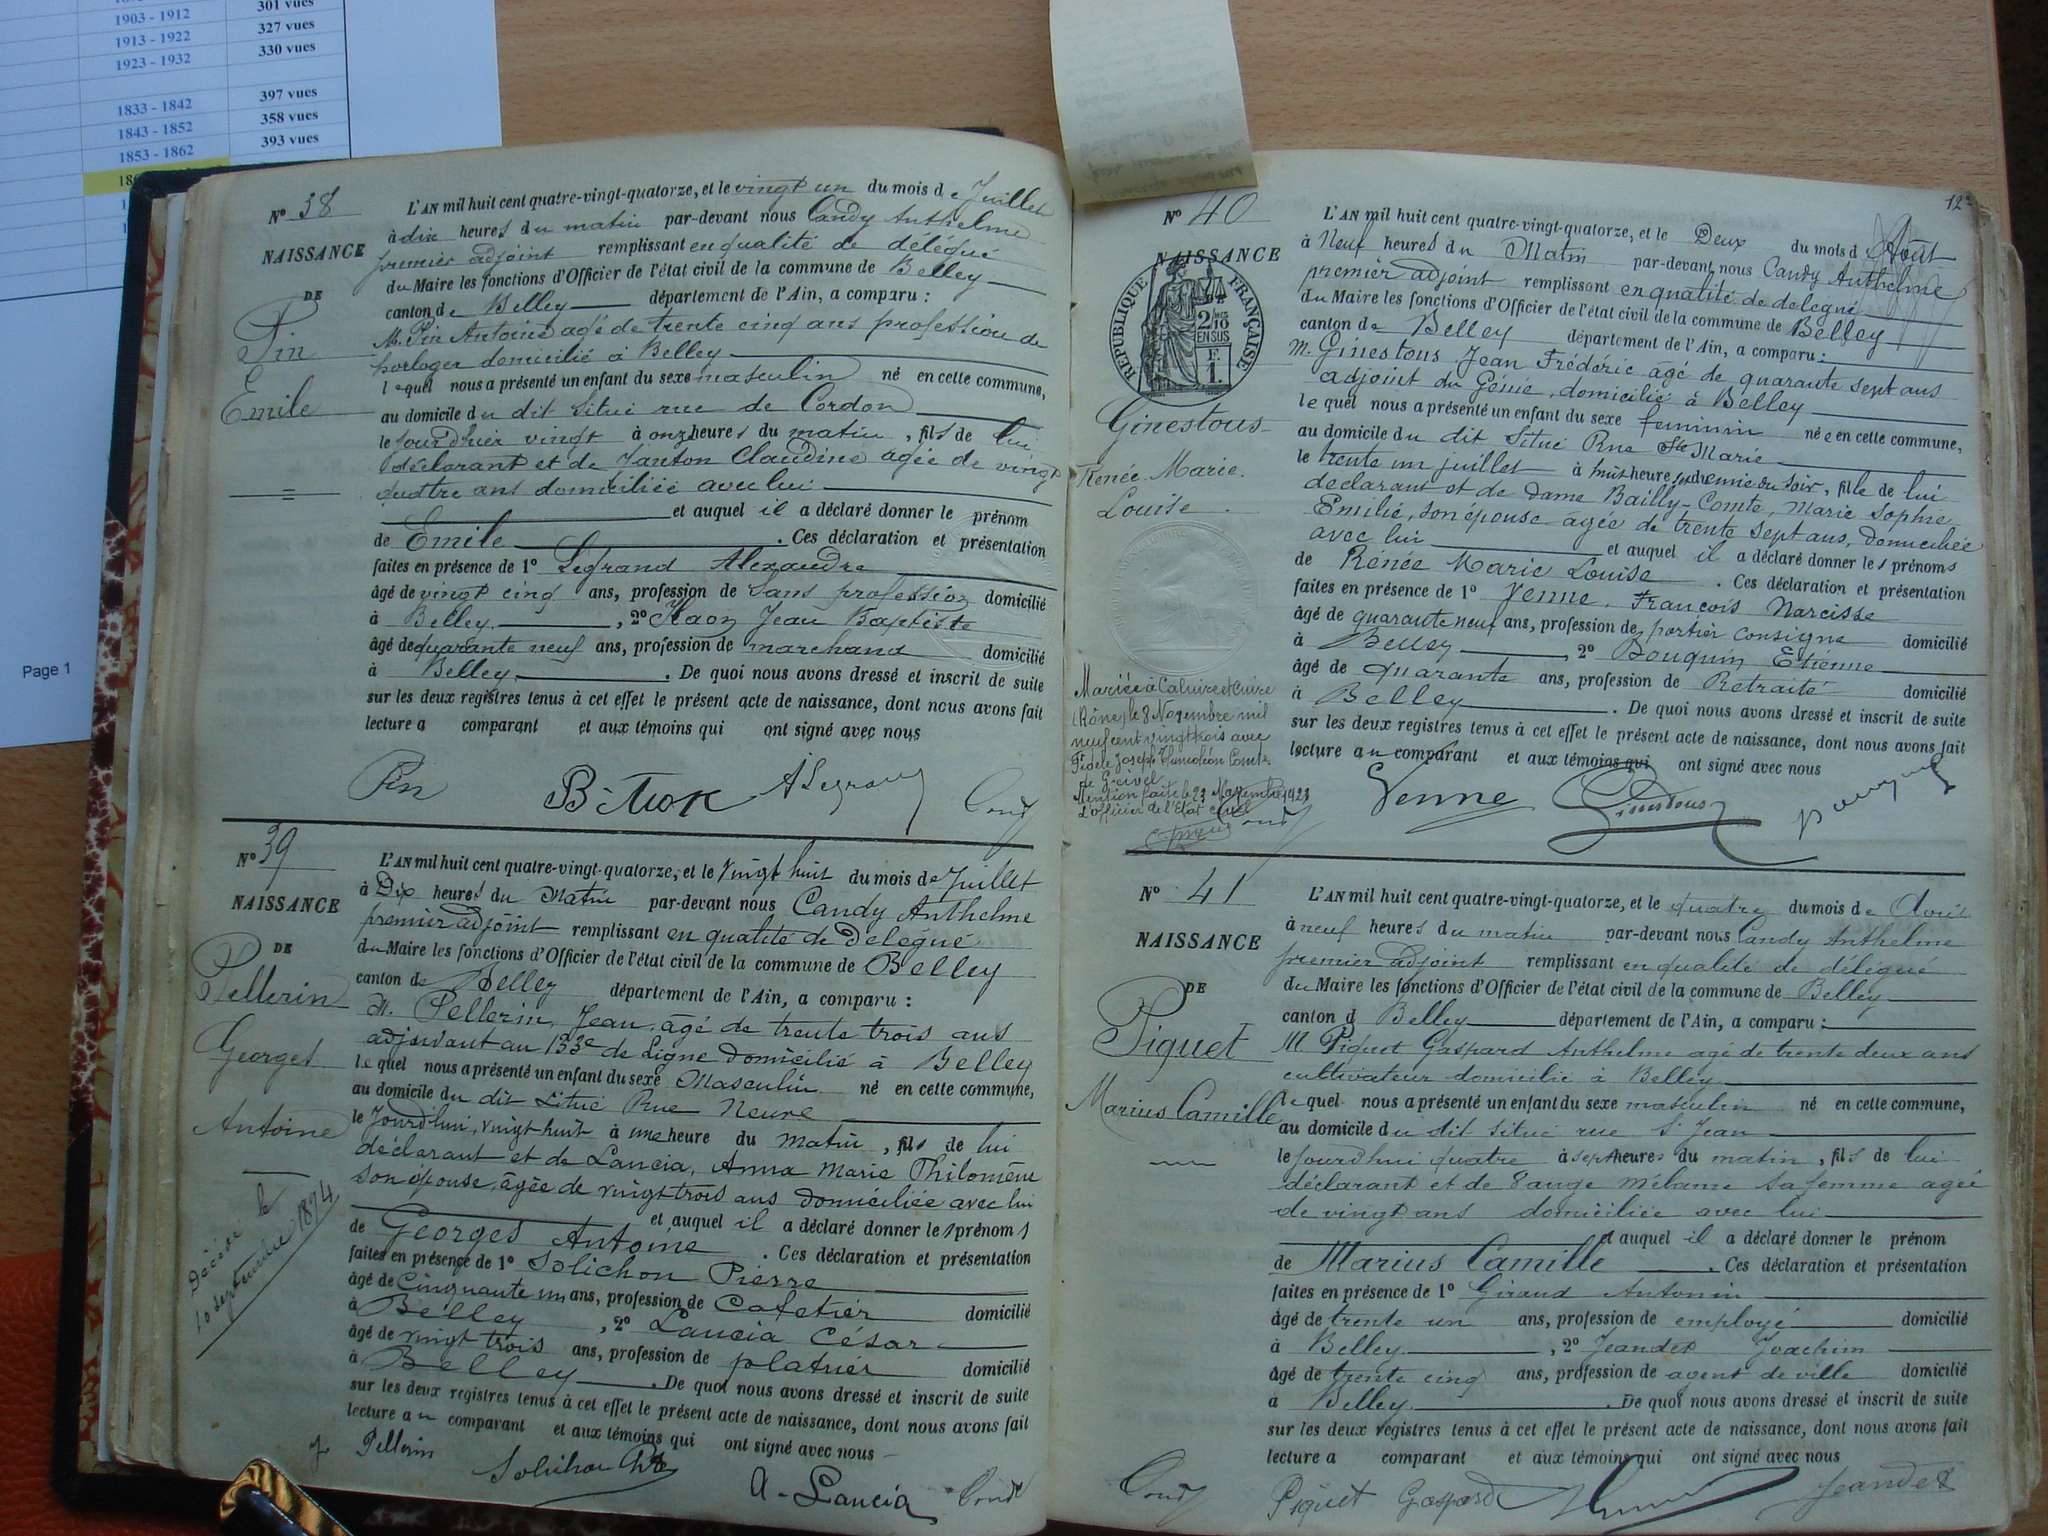 301 vues
1903 - 1912
327 vues
1913 - 1922
330 vues
1923 - 1932
1833 - 1842
397 vues
1843 - 1852
358 vues
1853 - 1862
393 vues
Page 1
N° 38
NAISSANCE
DE
Pin
Emile
L'AN mil huit cent quatre-vingt-quatorze, et le vingt un du mois de Juillet
à dix heures du matin par-devant nous Candy Anthelme
premier adjoint remplissant en qualité de délégué
du Maire les fonctions d'Officier de l'état civil de la commune de Belley
canton de Belley département de l'Ain, a comparu :
M. Pin Antoine agé de trente cinq ans profession de
horloger domicilié à Belley
lequel nous a présenté un enfant du sexe masculin né en cette commune,
au domicile du dit situé rue de Cordon
le jourd'hier vingt à onz heures du matin, fils de lui
déclarant et de Janton Claudine agée de vingt
quatre ans domiciliée avec lui
et auquel il a déclaré donner le prénom
de Emile. Ces déclaration et présentation
faites en présence de 1° Legrand Alexandre
âgé de vingt cinq ans, profession de sans profession domicilié
à Belley, 2° Jean Baptiste
âgé de quarante neuf ans, profession de marchand domicilié
à Belley. De quoi nous avons dressé et inscrit de suite
sur les deux registres tenus à cet effet le présent acte de naissance, dont nous avons fait
lecture a comparant et aux témoins qui ont signé avec nous
Pin ALegrand Candy
N° 39
NAISSANCE
DE
Pellerin
Georges
Antoine
Décédé le
10 septembre 1894
L'AN mil huit cent quatre-vingt-quatorze, et le vingt huit du mois de Juillet
à Dix heures du Matin par-devant nous Candy Anthelme
premier adjoint remplissant en qualité de Delegué
du Maire les fonctions d'Officier de l'état civil de la commune de Belley
canton de Belley département de l'Ain, a comparu :
M. Pellerin, Jean, âgé de trente trois ans
adjudant au 133e de Ligne domicilié à Belley
lequel nous a présenté un enfant du sexe Masculin né en cette commune,
au domicile du dit situé Rue Neuve
le Jourd'hui, vingt huit à une heure du matin, fils de lui
déclarant et de Lancia, Anna Marie Philomène
son épouse, âgée de vingt trois ans domiciliée avec lui
et auquel il a déclaré donner les prénoms
de Georges Antoine. Ces déclaration et présentation
faites en présence de 1° Solichon Pierre
âgé de cinquante un ans, profession de Cafetier domicilié
à Belley, 2° Lancia César
âgé de vingt trois ans, profession de platrier domicilié
à Belley. De quoi nous avons dressé et inscrit de suite
sur les deux registres tenus à cet effet le présent acte de naissance, dont nous avons fait
lecture au comparant et aux témoins qui ont signé avec nous
J Pellerin Solichon Lancia Candy
N° 40
NAISSANCE
REPUBLIQUE FRANÇAISE
2/10 EN SUS
F. 1.
Ginestous
Renée Marie
Louise
Mariée à Caluire et Cuire
(Rône) le 8 Novembre mil
neuf cent vingt trois avec
Fidèle Joseph Comte
de Grivel
Mention faite le 23 Novembre 1923
L'officier de l'Etat civil
L'AN mil huit cent quatre-vingt-quatorze, et le Deux du mois d'Août
à Neuf heures du Matin par-devant nous Candy Anthelme
premier adjoint remplissant en qualité de delegué
du Maire les fonctions d'Officier de l'état civil de la commune de Belley
canton de Belley département de l'Ain, a comparu :
M. Ginestous Jean Frédéric agé de quarante sept ans
adjoint du Génie, domicilié à Belley
lequel nous a présenté un enfant du sexe feminin née en cette commune,
au domicile du dit situé Rue Ste Marie
le trente un juillet à huit heures et demie du soir, fille de lui
declarant et de Dame Bailly-Comte, Marie Sophie
Emilie, son épouse âgée de trente sept ans, domiciliée
avec lui et auquel il a déclaré donner les prénoms
de Rénée Marie Louise. Ces déclaration et présentation
faites en présence de 1° Venne, François Narcisse
âgé de quarante neuf ans, profession de portier consigne domicilié
à Belley, 2° Bouquin Etienne
âgé de quarante ans, profession de Retraité domicilié
à Belley. De quoi nous avons dressé et inscrit de suite
sur les deux registres tenus à cet effet le présent acte de naissance, dont nous avons fait
lecture au comparant et aux témoins qui ont signé avec nous
Candy Venne Ginestous
N° 41
NAISSANCE
DE
Piquet
Marius Camille
L'AN mil huit cent quatre-vingt-quatorze, et le quatre du mois de Août
à neuf heures du matin par-devant nous Candy Anthelme
premier adjoint remplissant en qualité de délégué
du Maire les fonctions d'Officier de l'état civil de la commune de Belley
canton d Belley département de l'Ain, a comparu :
M Piquet Gaspard Anthelme agé de trente deux ans
cultivateur domicilié à Belley
lequel nous a présenté un enfant du sexe masculin né en cette commune,
au domicile du dit situé rue St Jean
le jourd'hui quatre à sept heures du matin, fils de lui
déclarant et de Mélanie sa femme agée
de vingt ans domiciliée avec lui
et auquel il a déclaré donner le prénom
de Marius Camille. Ces déclaration et présentation
faites en présence de 1° Giraud Antonin
âgé de trente un ans, profession de employé domicilié
à Belley, 2° Jeandet Joachim
âgé de trente cinq ans, profession de agent de ville domicilié
à Belley. De quoi nous avons dressé et inscrit de suite
sur les deux registres tenus à cet effet le présent acte de naissance, dont nous avons fait
lecture a comparant et aux témoins qui ont signé avec nous
Candy Piquet Gaspard Jeandet